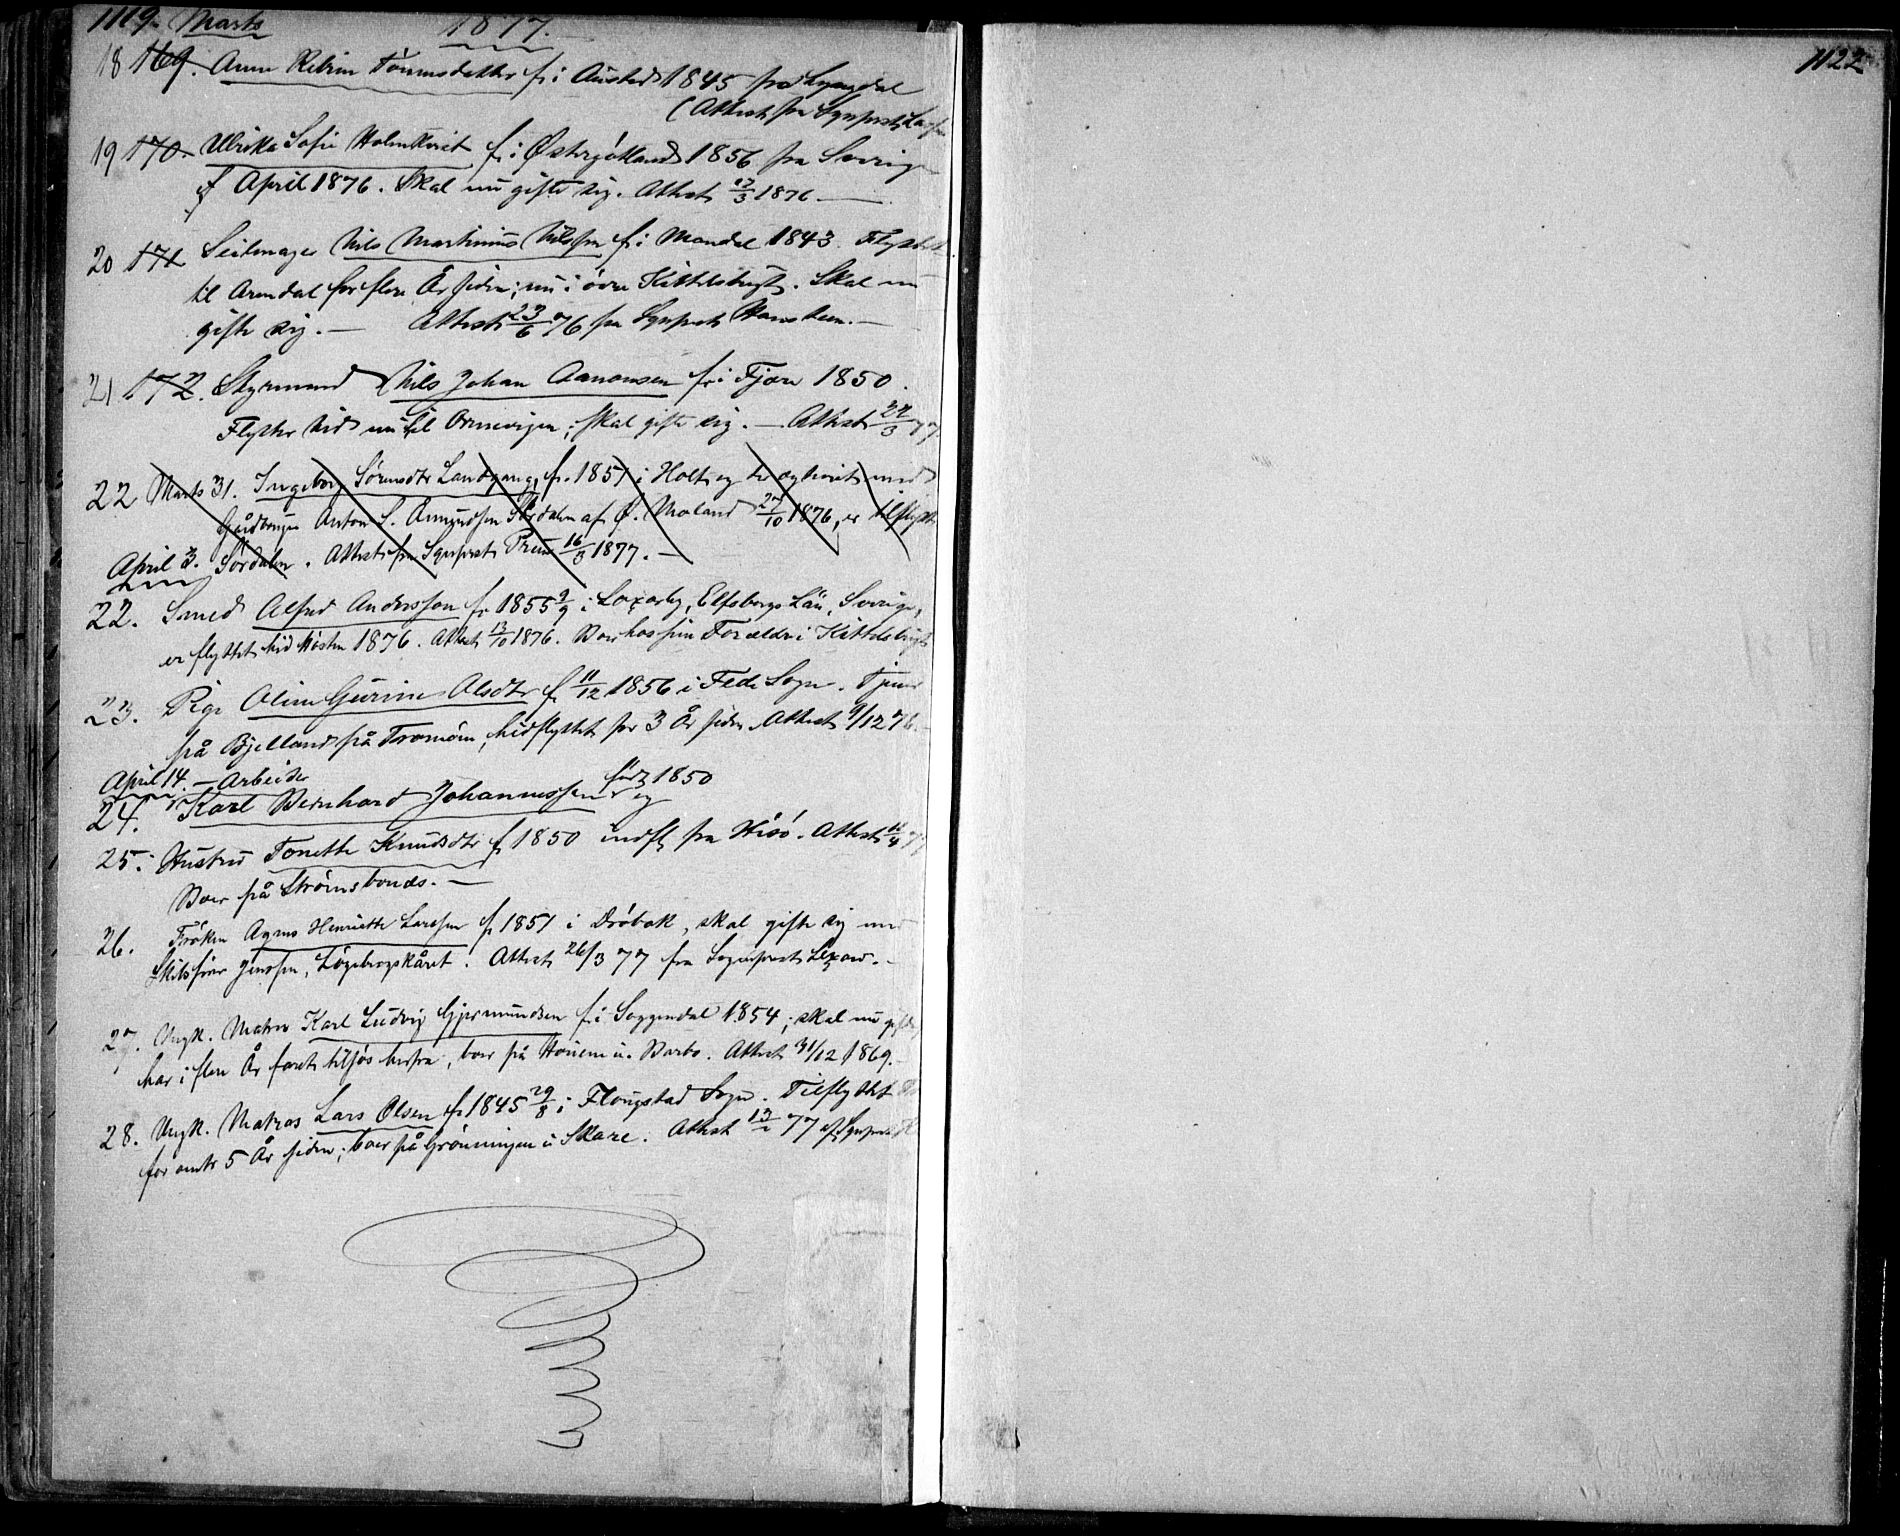 1119. Marts 1877.
18 169. Anne Rebina Tönnesdatter f. i Austad 1845 fra Lyngdal
(Attest fra Sgnprest
19 170. Ulrika Sofie Holmkvist f. i Östergötland 1856 fra Sverige
f April 1876. Skal nu gifte sig. Attest 13/3 1876 —
20 171 Seilmager Nils Martinius Nilsen f. i Mandal 1843. Flyttet
til Arendal for flere År siden; nu i övre Kittelsbugt. Skal nu
gifte sig. — Attest 23/6 76 fra Sgnprest Hansteen. —
21 172. Styrmand Nils Johan Aanonsen f. i Fjære 1850.
Flytter hid nu til Ormevigen; skal gifte sig. — Attest 22/3 77
22 Marts 31. Ingeborg Sørensdtr Landgang, f. 1851 i Holt og der egteviet med
Gårdbruger Anton S. Amundsen Sørdalen af Ö. Moland 27/10 1876, er tilflyttet
Sördalen. Attest fra Sgnprest Preus 16/3 1877. —
April 3.
22. Smed Alfred Andersson f. 1855 9/9 i Laxarby, Elfsborgs Län, Sverige,
er flyttet hid Høsten 1876. Attest 13/10 1876. Boer hos sine Forældre i Kittelsbugt
23. Pige Oline Gurine Olsdtr f. 11/12 1856 i Fede Sogn. Tjener
på Bjelland på Tromöen, hidflyttet for 3 År siden. Attest 9/12 76.
April 14. — Arbeider
24. Karl Bernhard Johannessen født 1850 og
25. Hustru Tonette Knudsdtr f. 1850 indfl. fra Hisö. Attest 11/4 77
Boer på Strömsbonäs. —
26. Fröken Agnes Henriette Larssen f. 1851 i Dröbak, skal gifte sig med
Skibsfører Jenssen, Longebrgskåret. Attest 26/3 77 fra Sogneprest Lexow. —
27. Ungk. Matros Karl Ludvig Gjermundsen f. i Soggendal 1854; skal nu giftes,
har i flere År faret tilsjös herfra, boer på Houene i Barbo. Attest 31/12 1869. —
28. Ungk. Matros Lars Olsen f. 1845 29/8 i Flougstad Sogn. Tilflyttet
for omtr 5 År siden; boer på Grönningen i Skare. Attest 13/2 77 af Sgnprest
1122